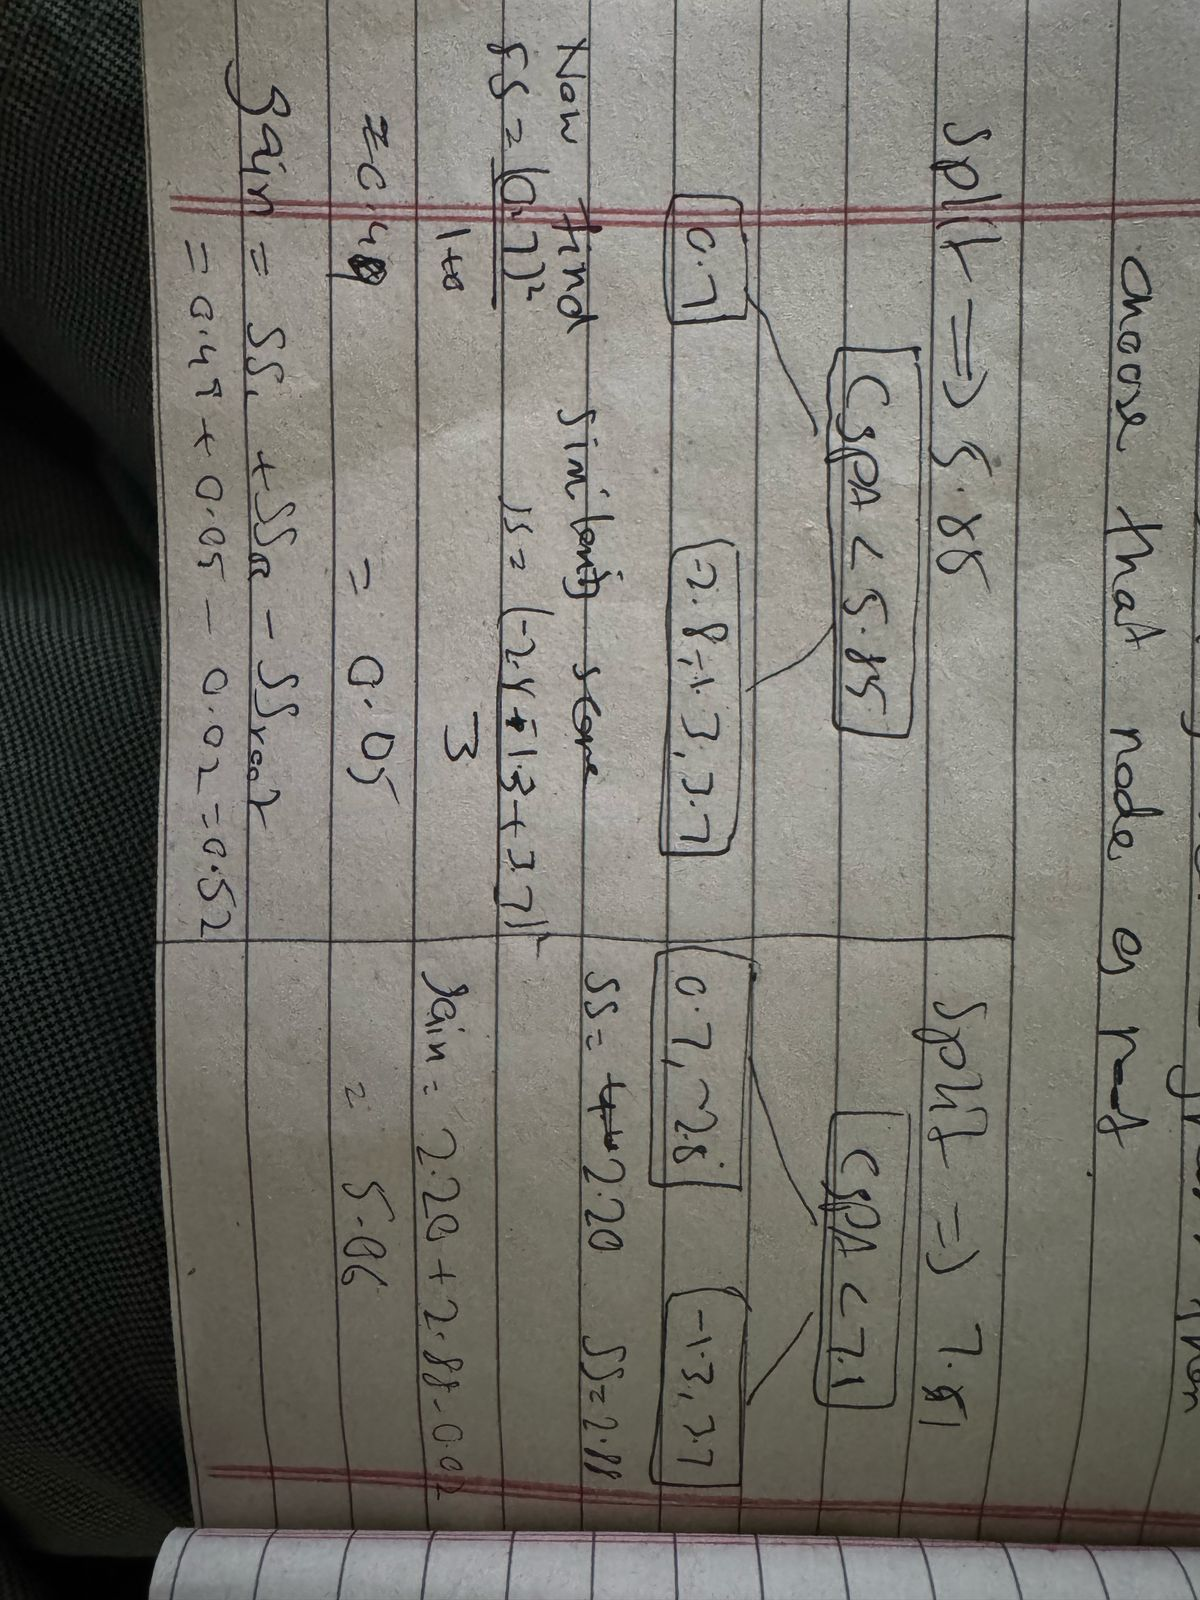 choose that node as root
Split => 5.85
CGPA < 5.85
0.7
-2.8, -1.3, 3.7
Now find similarity score
SS = (0.7)²
1+0
= 0.49
SS = (-2.8 + -1.3 + 3.7)²
3
= 0.05
gain = SSL + SSR - SSroot
= 0.49 + 0.05 - 0.02 = 0.52
Split => 7.1
CGPA < 7.1
0.7, -2.8
-1.3, 3.7
SS = 2.20 SS = 2.88
gain = 2.20 + 2.88 - 0.02
= 5.06